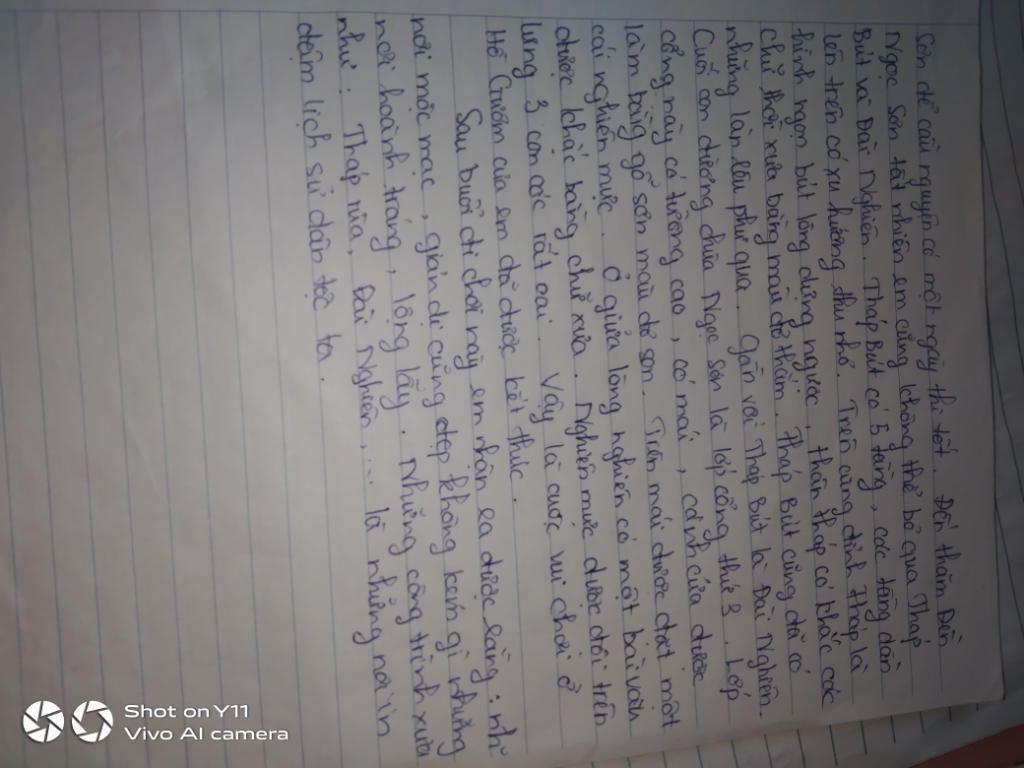 Sơn để cầu nguyện có một ngày thi tốt. Đến thăm Đền
Ngọc Sơn tất nhiên em cũng không thể bỏ qua Tháp
Bút và Đài Nghiên. Tháp Bút có 5 tầng, các tầng dần
lên trên có xu hướng thu nhỏ. Trên cùng đỉnh tháp là
hình ngọn bút lông dựng ngược, thân tháp có khắc các
chữ thời xưa bằng màu đỏ thắm. Tháp Bút cũng đã có
những lần lâu phụ qua. Gần với Tháp Bút là Đài Nghiên.
Cuối con đường chùa Ngọc Sơn là lớp cổng thứ 3. Lớp
cổng này có tường cao, có mái, cánh cửa được
làm bằng gỗ sơn màu đỏ son. Trên mái được đặt một
cái nghiên mực. Ở giữa lòng nghiên có một bài văn
được khắc bằng chữ xưa. Nghiên mực được đội trên
lưng 3 con cóc rất oai. Vậy là cuộc vui chơi ở
Hồ Gươm của em đã được kết thúc.
Sau buổi đi chơi này em nhận ra được rằng: những
nơi mộc mạc, giản dị cũng đẹp không kém gì những
nơi hoành tráng, lộng lẫy. Những công trình xưa
như: Tháp rùa, Đài Nghiên,... là những nơi in
đậm lịch sử dân tộc ta.
Shot on Y11
Vivo AI camera